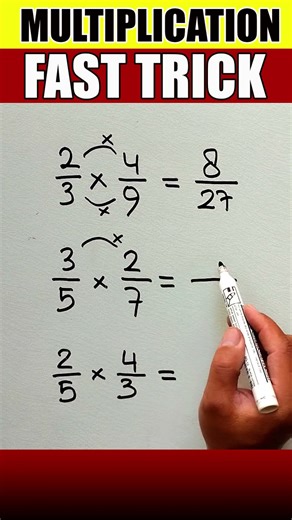 MULTIPLICATION
FAST TRICK
2/3 × 4/9 = 8/27
3/5 × 2/7 =
2/5 × 4/3 =